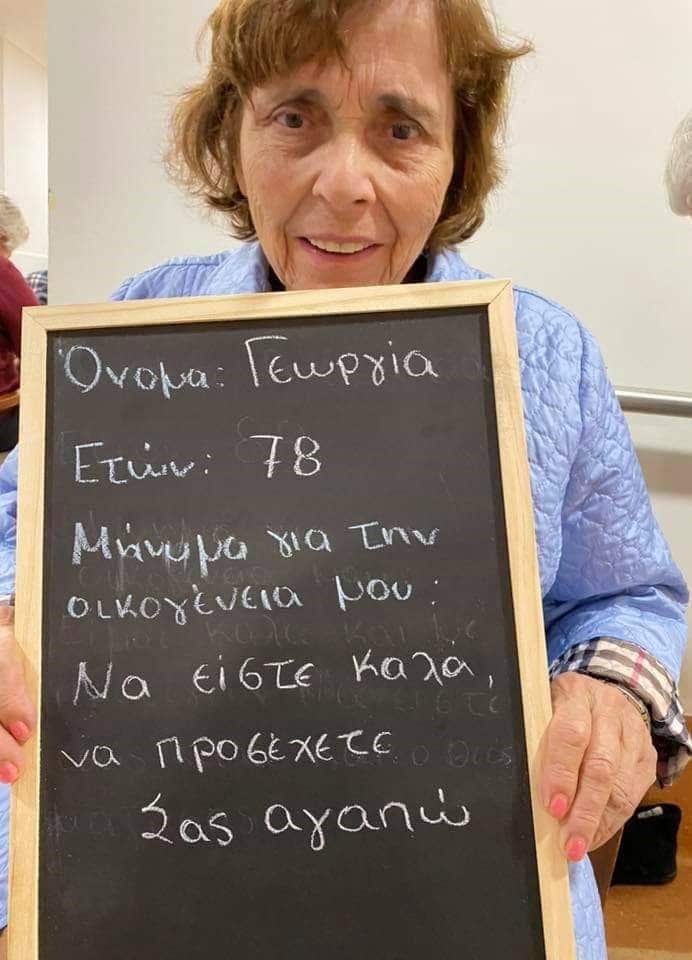 Όνομα: Γεωργία
Ετών: 78
Μήνυμα για την
οικογένεια μου:
Να είστε καλά,
να προσέχετε
Σας αγαπώ